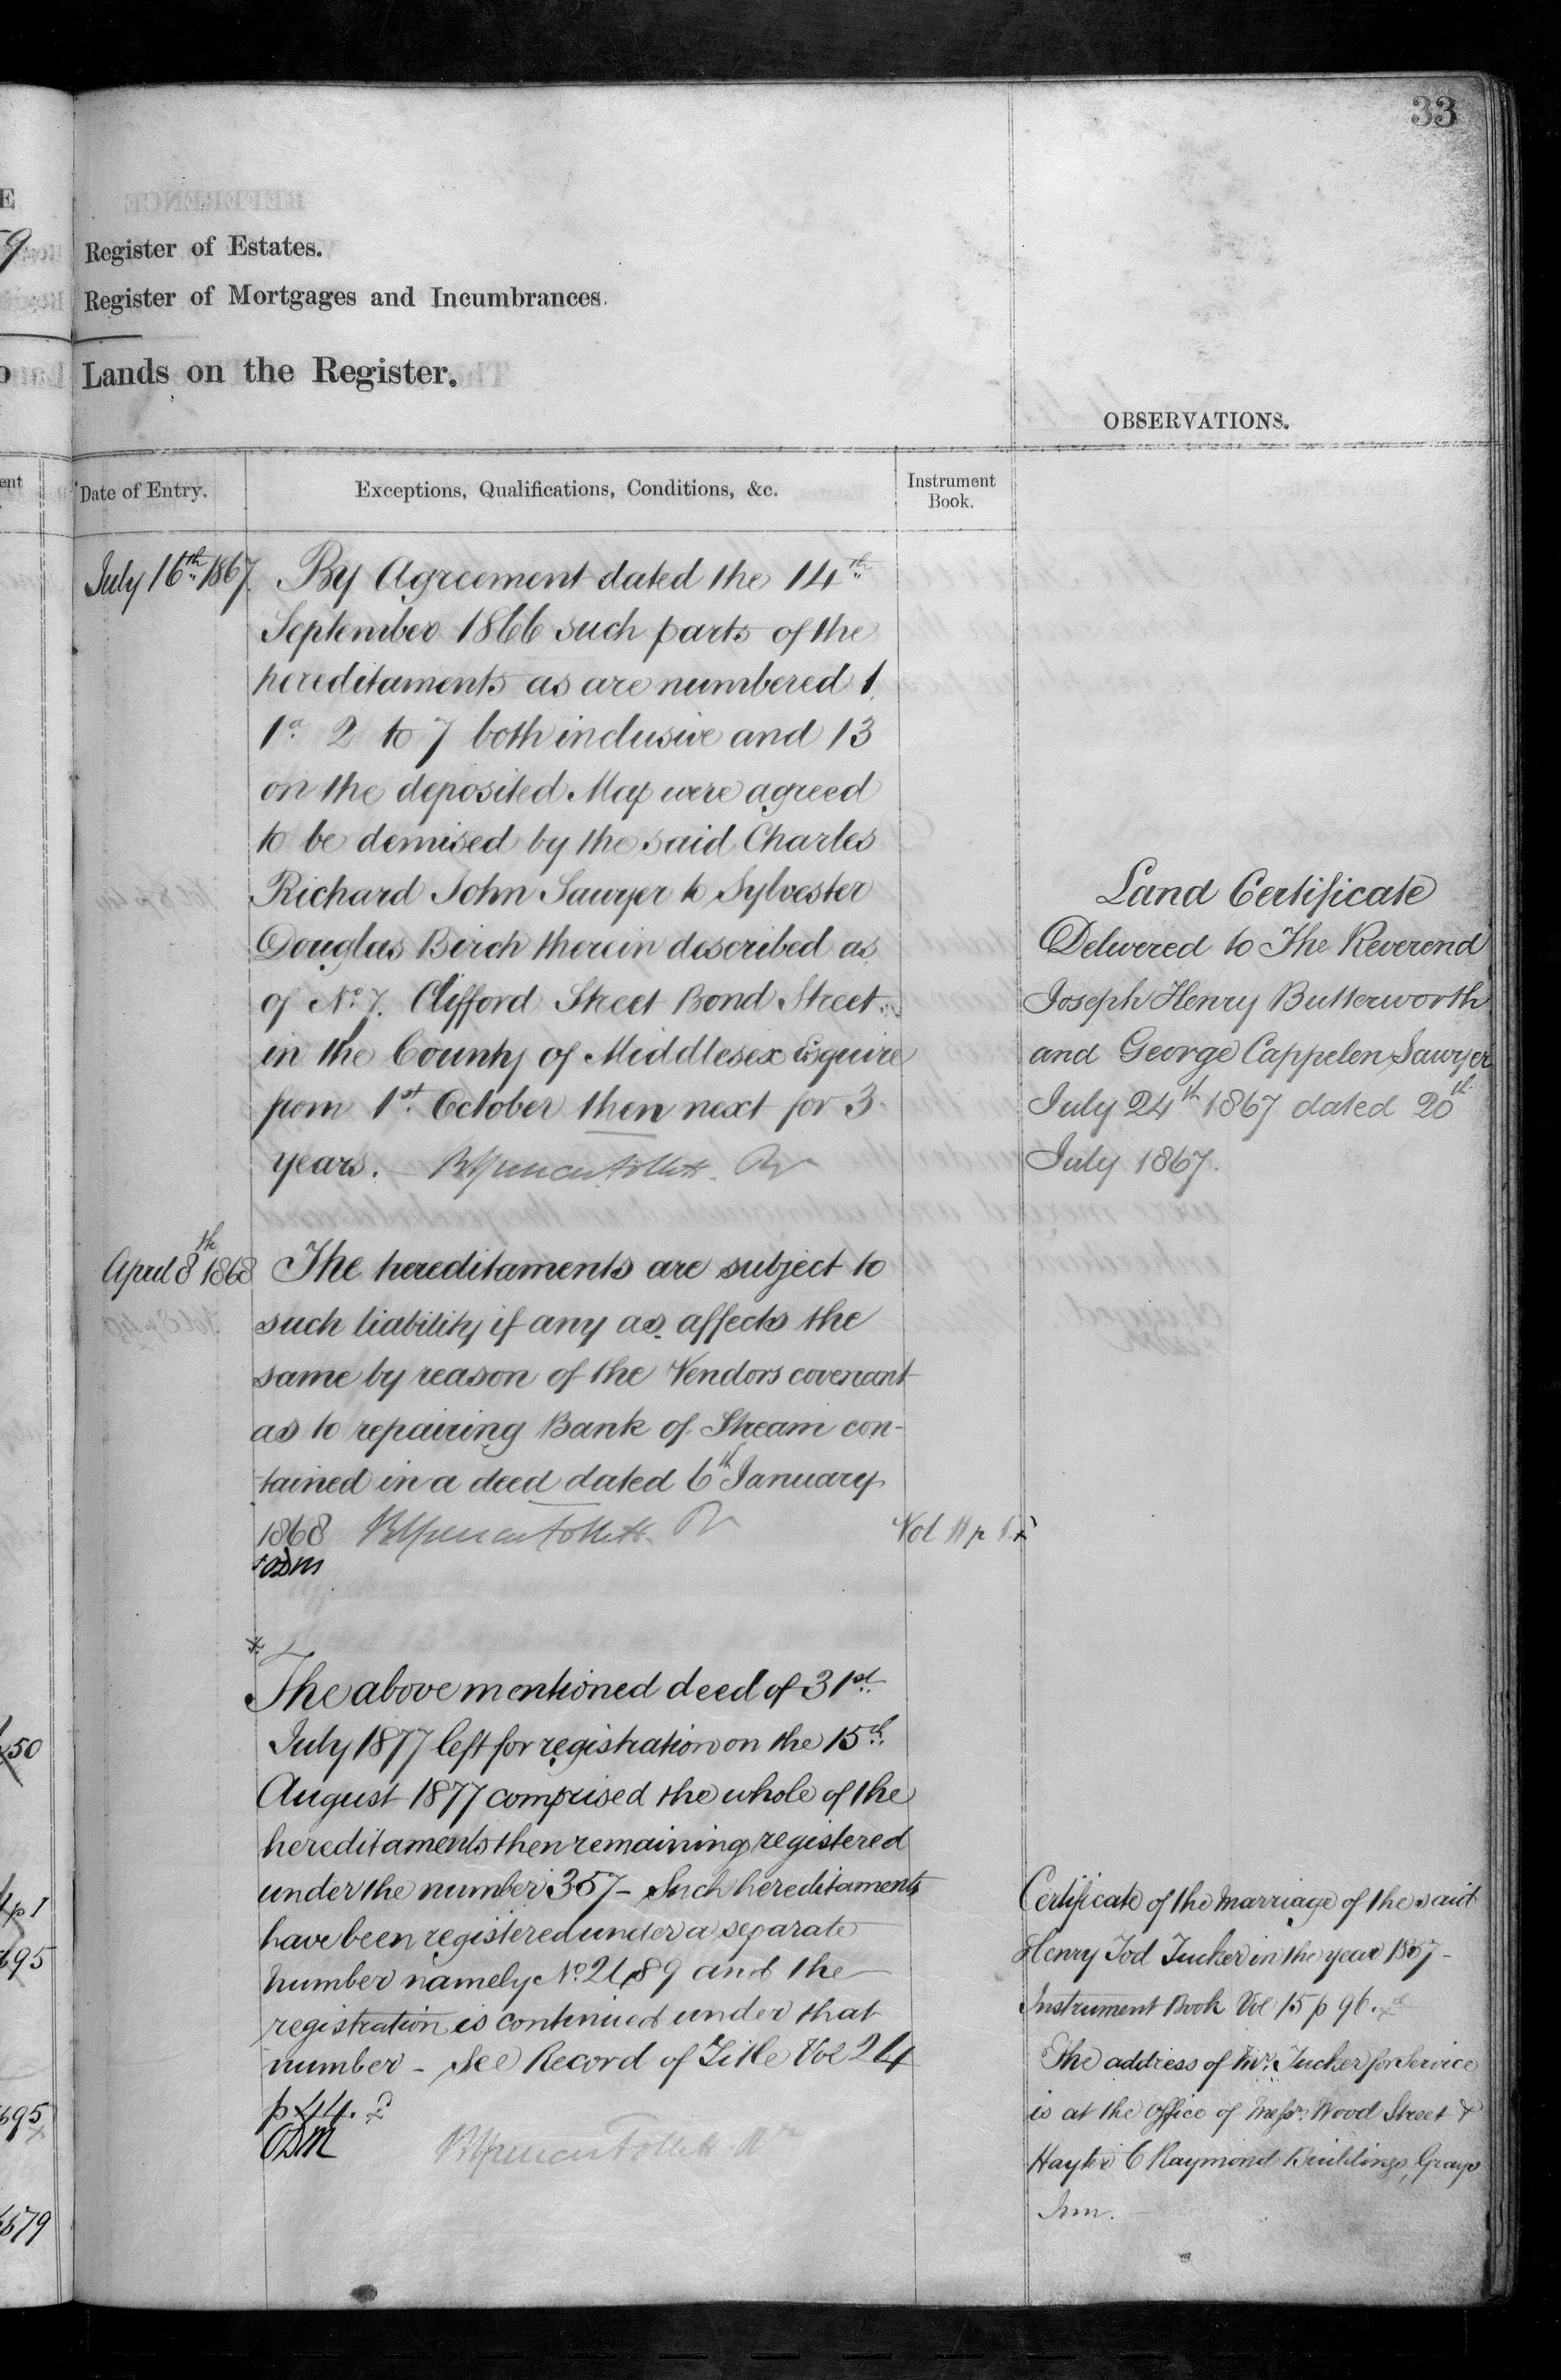 33
Register of Estates.
Register of Mortgages and Incumbrances.
Lands on the Register.
OBSERVATIONS.
Date of Entry.
Exceptions, Qualifications, Conditions, &c.
Instrument
Book.
July 16th 1867.
By Agreement dated the 14th
September 1866 such parts of the
hereditaments as are numbered 1
1a 2 to 7 both inclusive and 13
on the deposited Map were agreed
to be demised by the said Charles
Richard John Sawyer to Sylvester
Douglas Birch therein described as
of No. 7. Clifford Street Bond Street
in the County of Middlesex Esquire
from 1st October then next for 3
years.
April 8th 1868
The hereditaments are subject to
such liability if any as affects the
same by reason of the Vendors covenant
as to repairing Bank of Stream con-
tained in a deed dated 6th January
1868
Vol 11 p
The above mentioned deed of 31st
July 1877 left for registration on the 15th
August 1877 comprised the whole of the
hereditaments then remaining registered
under the number 357 - Such hereditaments
have been registered under a separate
number namely No. 2189 and the
registration is continued under that
number - See Record of Title Vol 24
p 44.
Land Certificate
Delivered to The Reverend
Joseph Henry Butterworth
and George Cappelen Sawyer
July 24th 1867 dated 20th
July 1867.
Certificate of the Marriage of the said
Henry Tod Tucker in the year 1857 -
Instrument Book Vol 15 p 96.
The address of Mr. Tucker for Service
is at the Office of Messrs. Wood Street &
Hayter 6 Raymond Buildings, Grays
Inn.